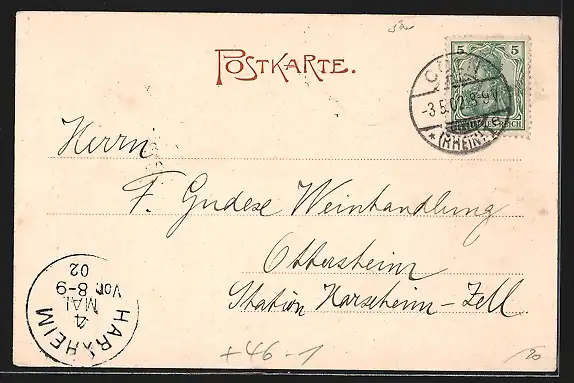 POSTKARTE.
5
5
CÖLN
-3.5.02.8-9V.
* (RHEIN) *
Herrn
F. Gudese Weinhandlung
Ottersheim
Station Harxheim-Zell
HARXHEIM
4
MAI
Vor. 8-9
02
+46-1